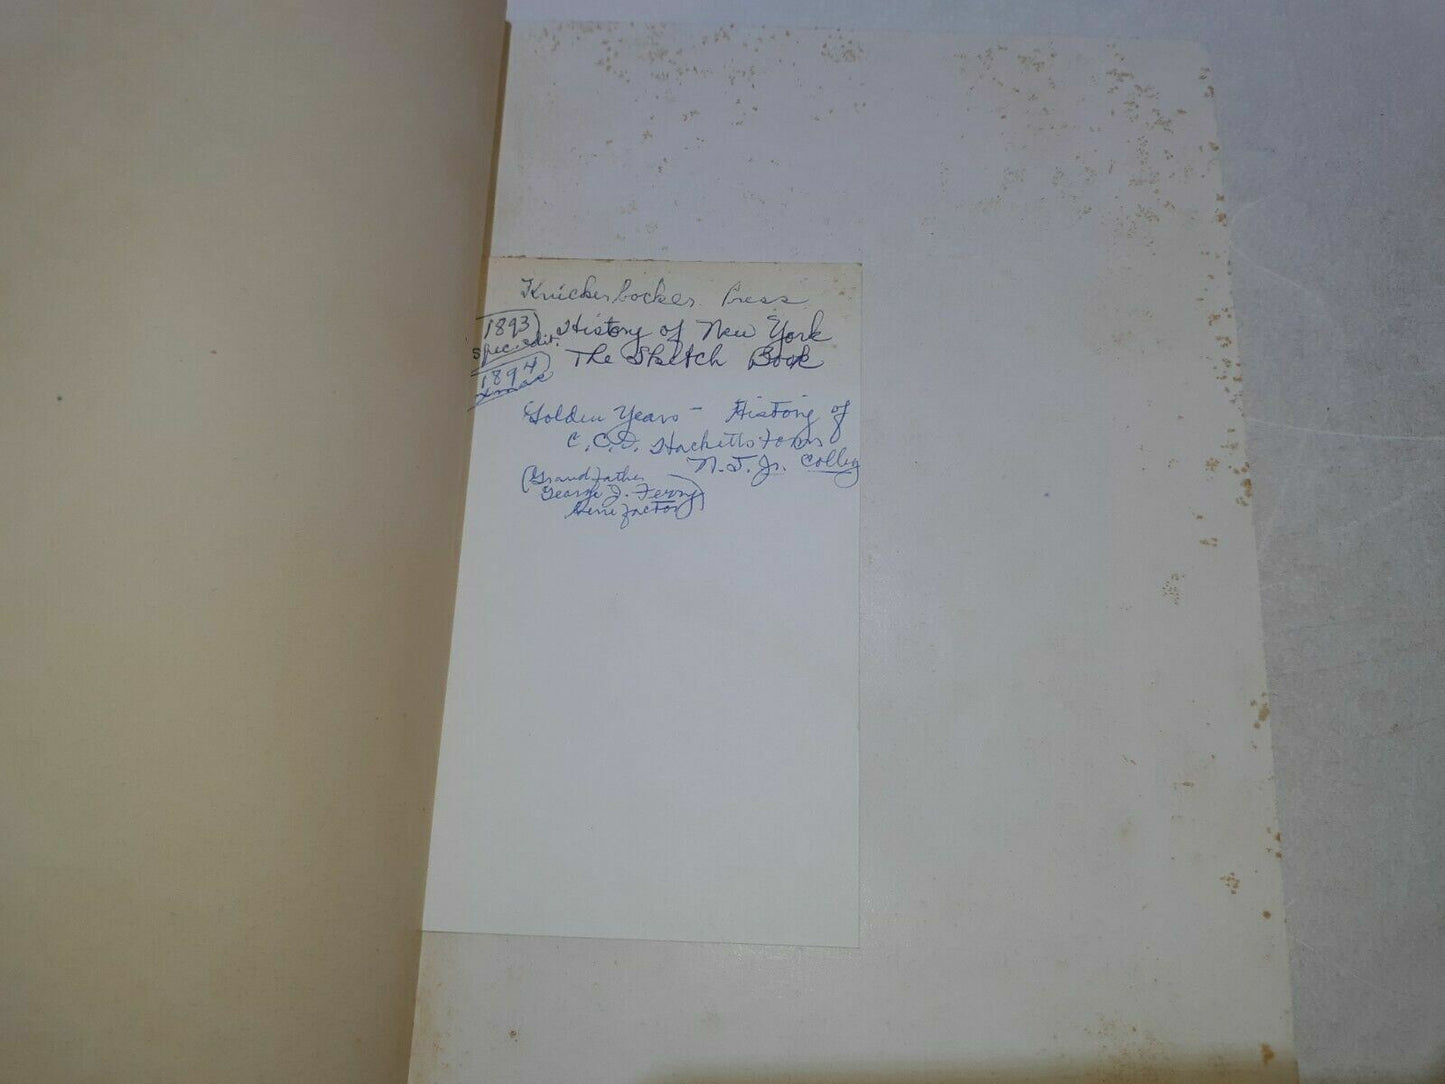 Knickerbocker Press
1893) History of New York
spec. edit. The Sketch Book
1894)
xmas
Golden Years - History of
C.C.I. Hackettstown
N.J. Jr. College
(Grandfather
George J. Ferry)
Benefactor